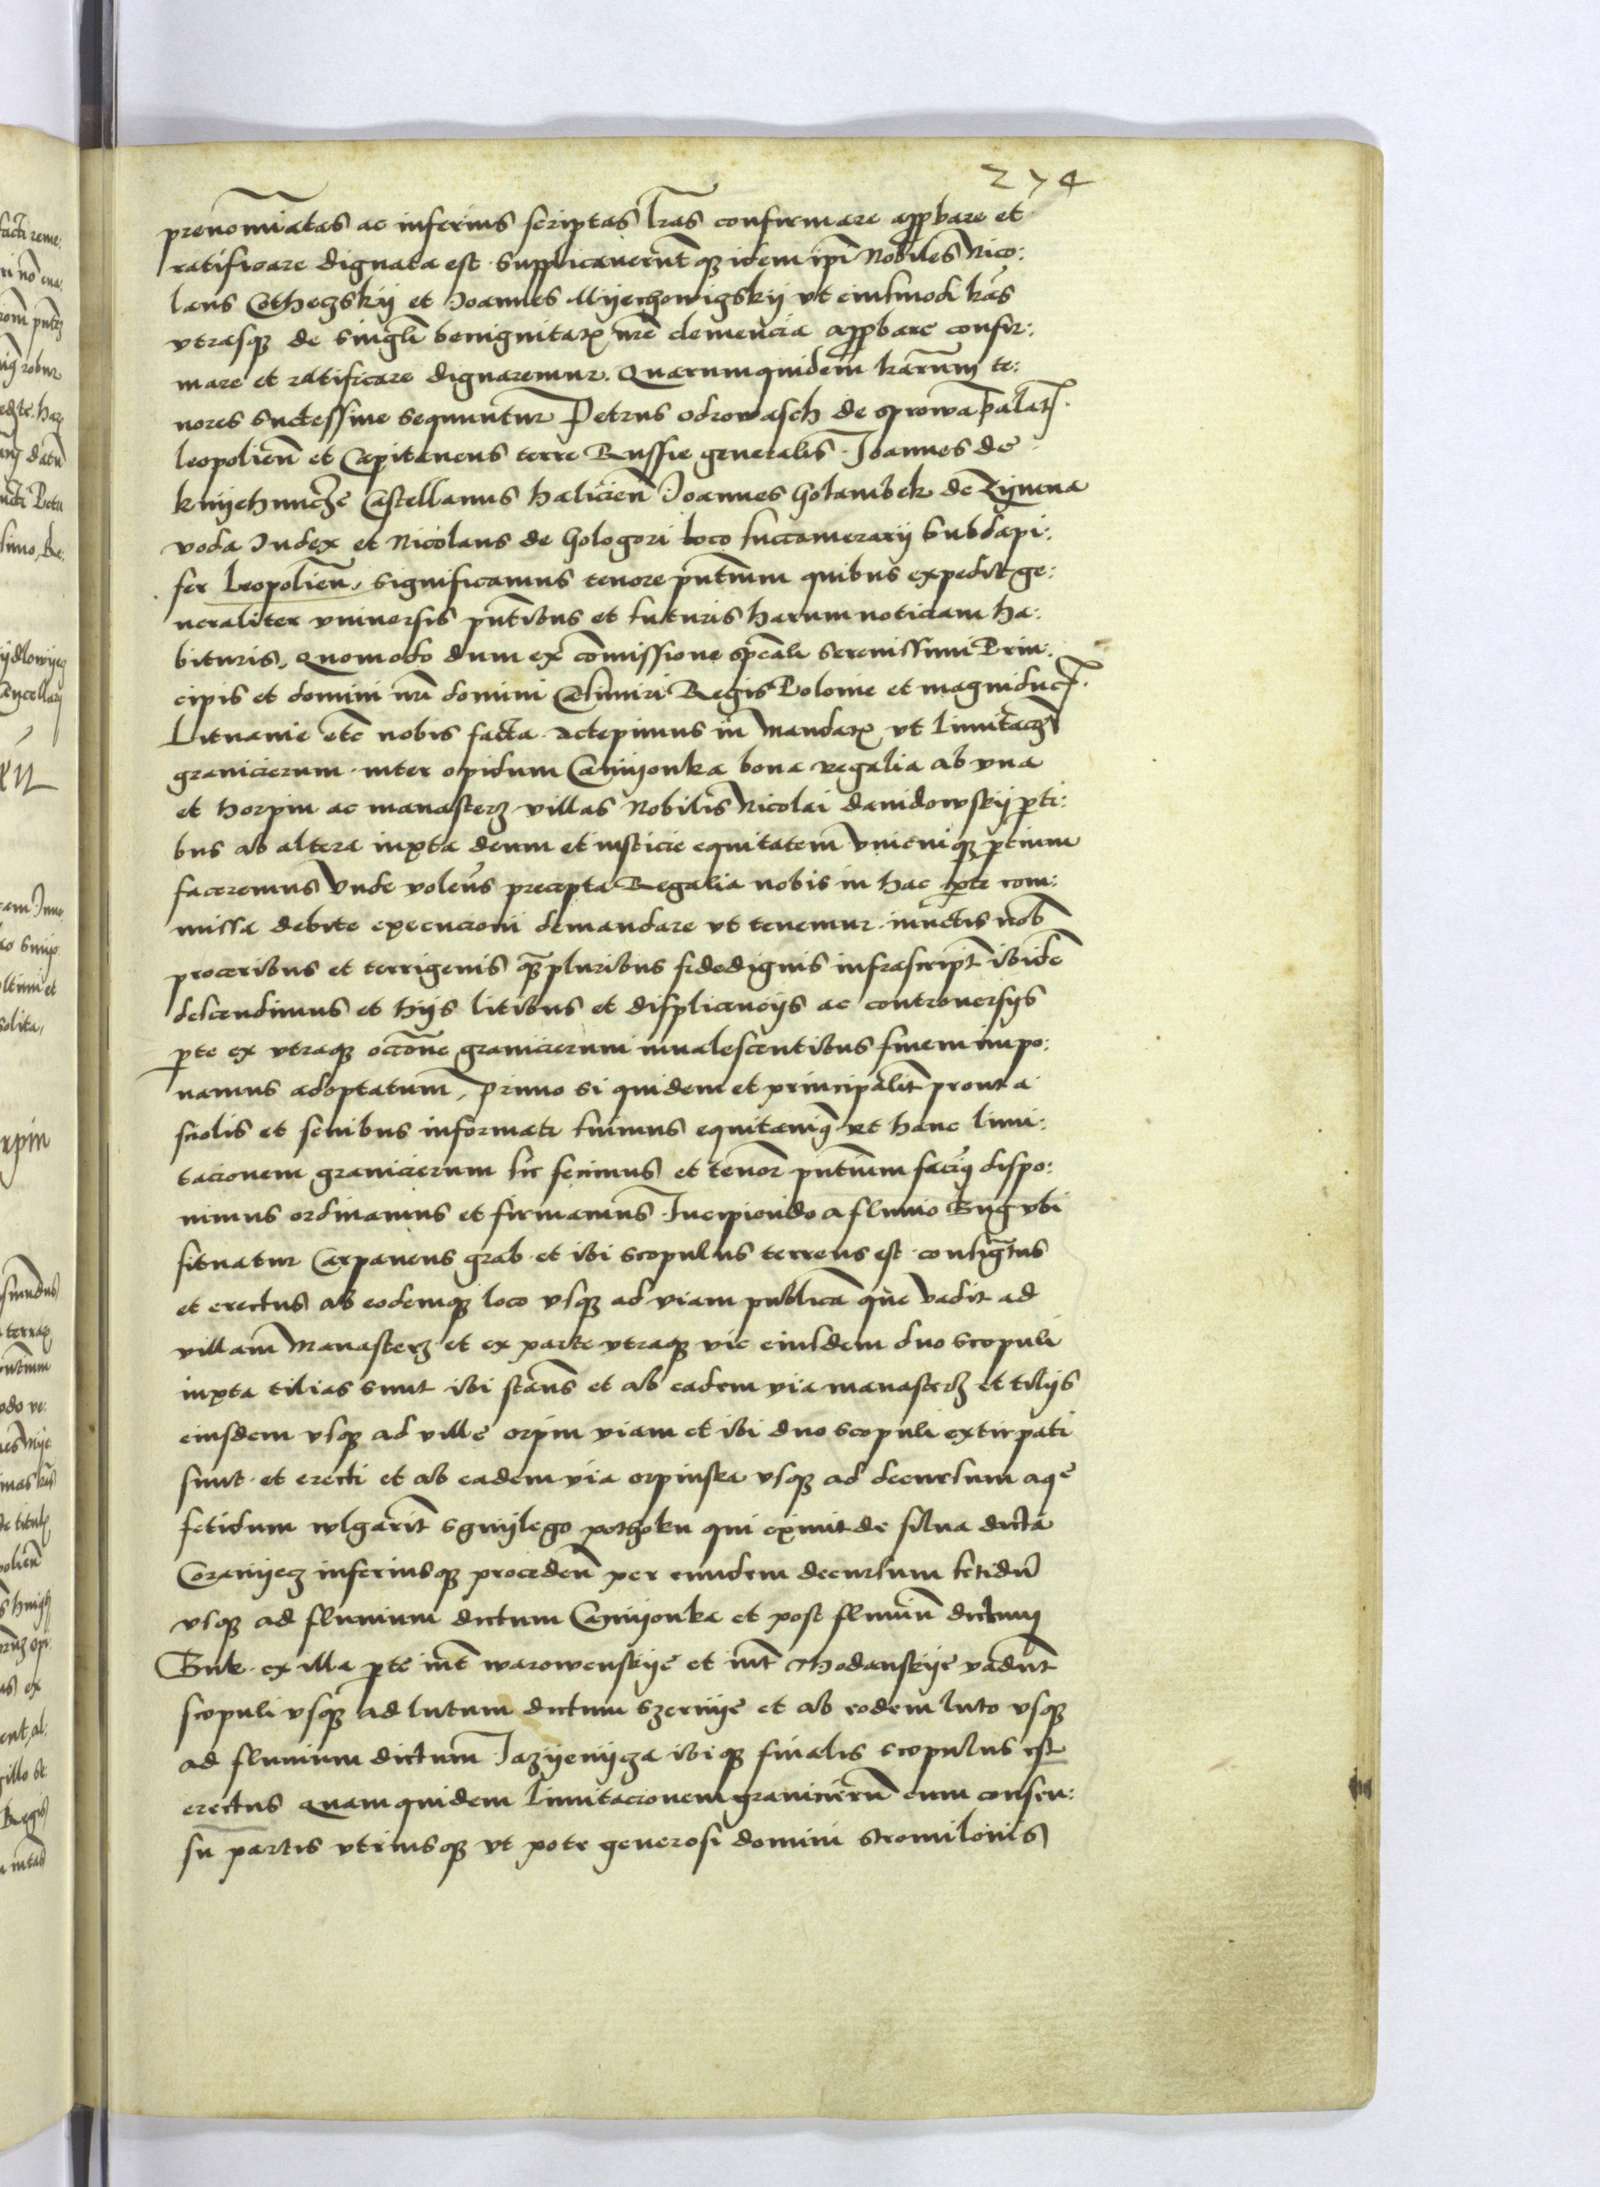 274
prenomīatas ac inferius scriptas lr̄as confirmare app̱bare et
ratificare dignata est. Supplicaverūt q̱ idem ip̄i Nobiles Nico:
laus Cothegskÿ et Joannes Mÿechowigskÿ vt eiusmodi lr̄as
vtrasq̱ de singl̄i benignitate nr̄e clemencia app̱bare confir:
mare et ratificare dignaremur. Quarumquidem lr̄arum te:
nores successiue sequuntur Petrus odrowasch de sprowa palat̄
leopolien̄ et Capitaneus terre Russie generalis. Joannes de
knÿehnicze Castellanus halicien̄ Joannes Golambek de Zÿmna
voda Judex et Nicolaus de Gologori loco succamerarÿ Subdapi:
fer Leopolien̄, significamus tenore pn̄tium quibus expedit ge:
neraliter vniuersis pn̄tibus et futuris harum noticiam ha:
bituris, Quomodo dum ex com̄issione spēali serenissimi Prin:
cipis et domini nr̄i domini Casimiri Regis Polonie et magniducis
Lituanie etc̄ nobis facta accepimus in mandatis vt limitac̄oēs
granicierum inter opidum Camÿonka bona regalia ab vna
et horpin ac manasterz villas Nobilis Nicolai dauidowskÿ p̱ti:
bus ab altera iuxta deum et iusticie equitatem vnicuiq̱ p̱tium
faceremus Vnde volen̄s precepta Regalia nobis in hac p̱te com:
missa debite execucioni demandare vt tenemur. iunctis nob̄
proceribus et terrigenis q̱ pluribus fidedignis infrascript̄ ibidē
descendimus et hÿs litibus et displicencÿs ac controuersÿs
p̱te ex vtraq̱ occ̄one granicierum inualescentibus finem impo:
namus adoptatum, Primo si quidem et principalit̄ prout a
sciolis et senibus informati fuimus equitauim⁹ et hanc limi:
tacionem granicierum sic fecimus et tenor̄ pn̄tium facim⁹ dispo:
nimus ordinamus et firmamus. Incipiendo a fluuio Bug vbi
situatur Carpaneus grab. et ibi scopulus terreus est. consig̱tus
et erectus ab eodemq̱ loco vsq̱ ad viam publicā que vadit ad
villam Manasterz et ex parte vtraq̱ vie eiusdem duo scopuli
iuxta tilias sunt ibi stan̄s et ab eadem via manasterz et tilÿs
eiusdem vsq̱ ad ville orpin viam et ibi duo scopuli extirpati
sunt. et erecti et ab eadem via orpinska vsq̱ ad decursum aqe
fetidum wlgarit̄ sgnÿlego pothoku qui exiuit de silua dicta
Coranÿecz inferiusq̱ proceden̄ per eundem decursum fetidū
vsq̱ ad fluuium dictum Camÿonka et post fluuiū dictum
Buk. ex illa p̱te int̄ warowenskÿe et int̄ rhodanskÿe vadunt
scopuli vsq̱ ad lutum dictum Szernÿe et ab eodem luto vsq̱
ad fluuium dictum Jazÿenÿcza ibiq̱ finalis scopulus est
erectus Quamquidem limitacionem granicierū cum consen:
su partis vtriusq̱ vt pote generosi domini stromilonis